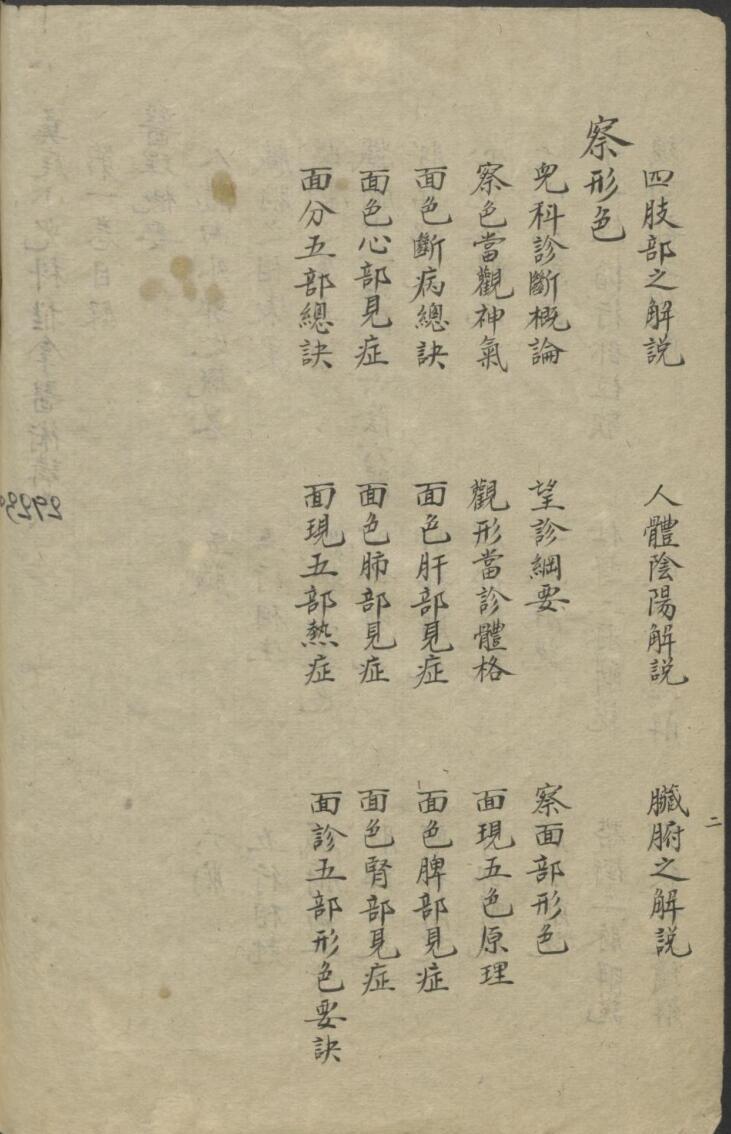 四肢部之解説　人體陰陽解説　臟腑之解説
察形色
兒科診斷概論　望診綱要　察面部形色
察色當觀神氣　觀形當診體格　面現五色原理
面色斷病總訣　面色肝部見症　面色脾部見症
面色心部見症　面色肺部見症　面色腎部見症
面分五部總訣　面現五部熱症　面診五部形色要訣
二